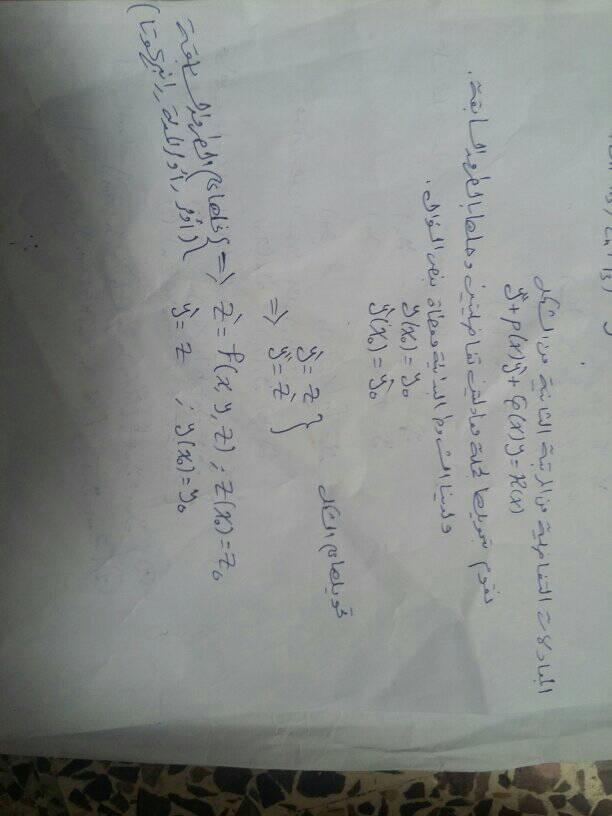 المعادلات التفاضلية من المرتبة الثانية من الشكل
y''+p(x)y'+q(x)y=R(x)
نقوم بتحويلها لجملة معادلتين تفاضليتين وحلها بالطرق السابقة.
ولدينا الشروط البدائية معطاة بنص السؤال.
y(x₀)=y₀
y'(x₀)=y'₀
تحويلها من الشكل
y'=z }
=> y''=z'
=> z'=f(x,y,z) ; z(x₀)=z₀
y'=z ; y(x₀)=y₀
الطرق السابقة
(أولر، أولر المعدلة، رانج كوتا)